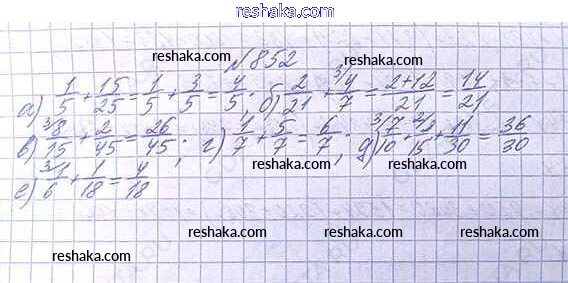 www.reshaka.com
№852
reshaka.com reshaka.com
а) 1/5 + 15/25 = 1/5 + 3/5 = 4/5; б) 2/21 + 3/4/7 = 2+12/21 = 14/21
в) 3/8/15 + 2/45 = 26/45; г) 1/7 + 5/7 = 6/7; д) 3/7/10 + 2/2/15 + 11/30 = 36/30
reshaka.com reshaka.com reshaka.com
е) 3/1/6 + 1/18 = 4/18
reshaka.com reshaka.com reshaka.com